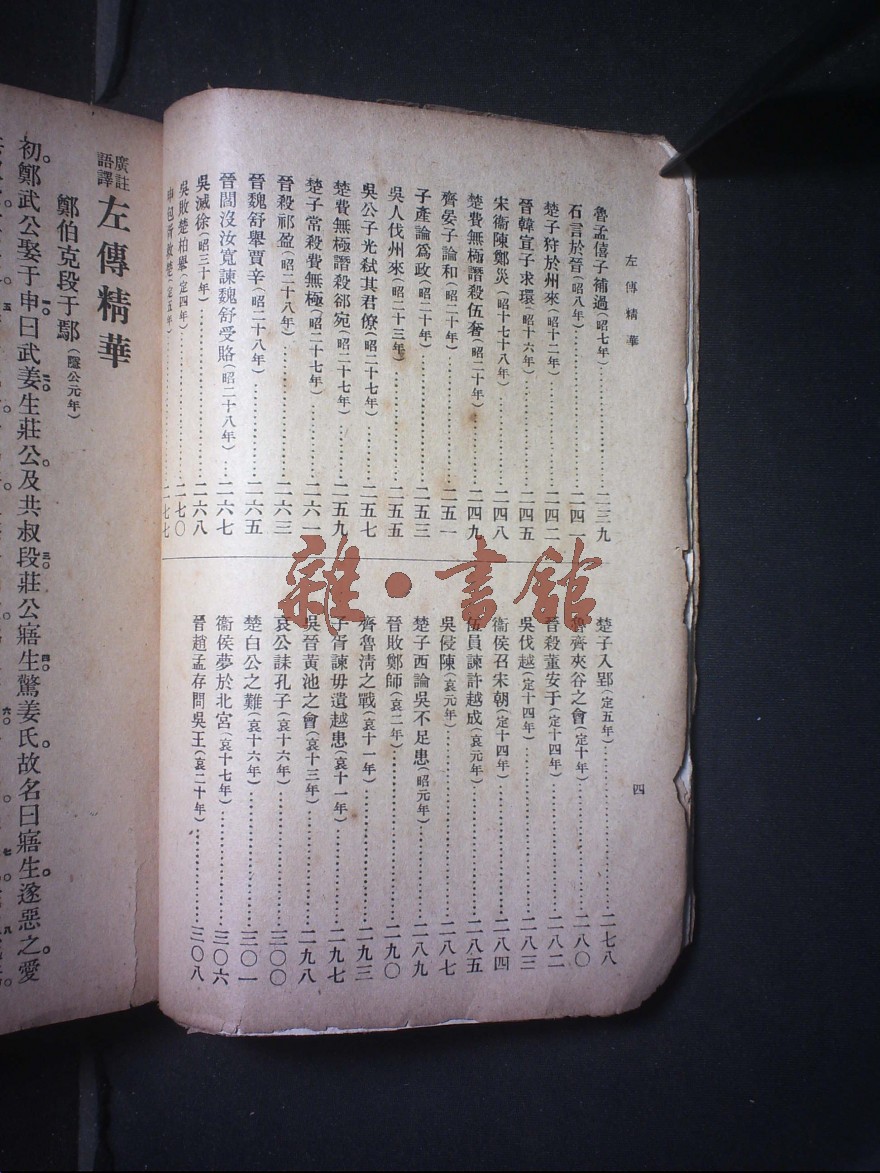 左傳精華
四
魯孟僖子補過(昭七年)⋯⋯二三九
石言於晉(昭八年)⋯⋯二四一
楚子狩於州來(昭十二年)⋯⋯二四二
晉韓宣子求環(昭十六年)⋯⋯二四五
宋衞陳鄭災(昭十七十八年)⋯⋯二四八
楚費無極譖殺伍奢(昭二十年)⋯⋯二四九
齊晏子論和(昭二十年)⋯⋯二五一
子產論爲政(昭二十年)⋯⋯二五三
吳人伐州來(昭二十三年)⋯⋯二五五
吳公子光弒其君僚(昭二十七年)⋯⋯二五七
楚費無極譖殺郤宛(昭二十七年)⋯⋯二五九
楚子常殺費無極(昭二十七年)⋯⋯二六一
晉殺祁盈(昭二十八年)⋯⋯二六三
晉魏舒舉賈辛(昭二十八年)⋯⋯二六五
晉閻沒汝寬諫魏舒受賂(昭二十八年)⋯⋯二六七
吳滅徐(昭三十年)⋯⋯二六八
吳敗楚柏舉(定四年)⋯⋯二七〇
申包胥救楚(定五年)⋯⋯二七七
楚子入郢(定五年)⋯⋯二七八
魯齊夾谷之會(定十年)⋯⋯二八〇
晉殺董安于(定十四年)⋯⋯二八二
吳伐越(定十四年)⋯⋯二八三
衞侯召宋朝(定十四年)⋯⋯二八四
伍員諫許越成(哀元年)⋯⋯二八五
吳侵陳(哀元年)⋯⋯二八七
楚子西論吳不足患(昭元年)⋯⋯二八九
晉敗鄭師(哀二年)⋯⋯二九〇
齊魯淸之戰(哀十一年)⋯⋯二九三
子胥諫毋遺越患(哀十一年)⋯⋯二九七
吳晉黃池之會(哀十三年)⋯⋯二九八
哀公誄孔子(哀十六年)⋯⋯三〇〇
楚白公之難(哀十六年)⋯⋯三〇一
衞侯夢於北宮(哀十七年)⋯⋯三〇六
晉趙孟存問吳王(哀二十年)⋯⋯三〇八
雜·書館
廣註語譯左傳精華
鄭伯克段于鄢(隱公元年)
初鄭武公娶于申曰武姜生莊公及共叔段莊公寤生驚姜氏故名曰寤生遂惡之愛